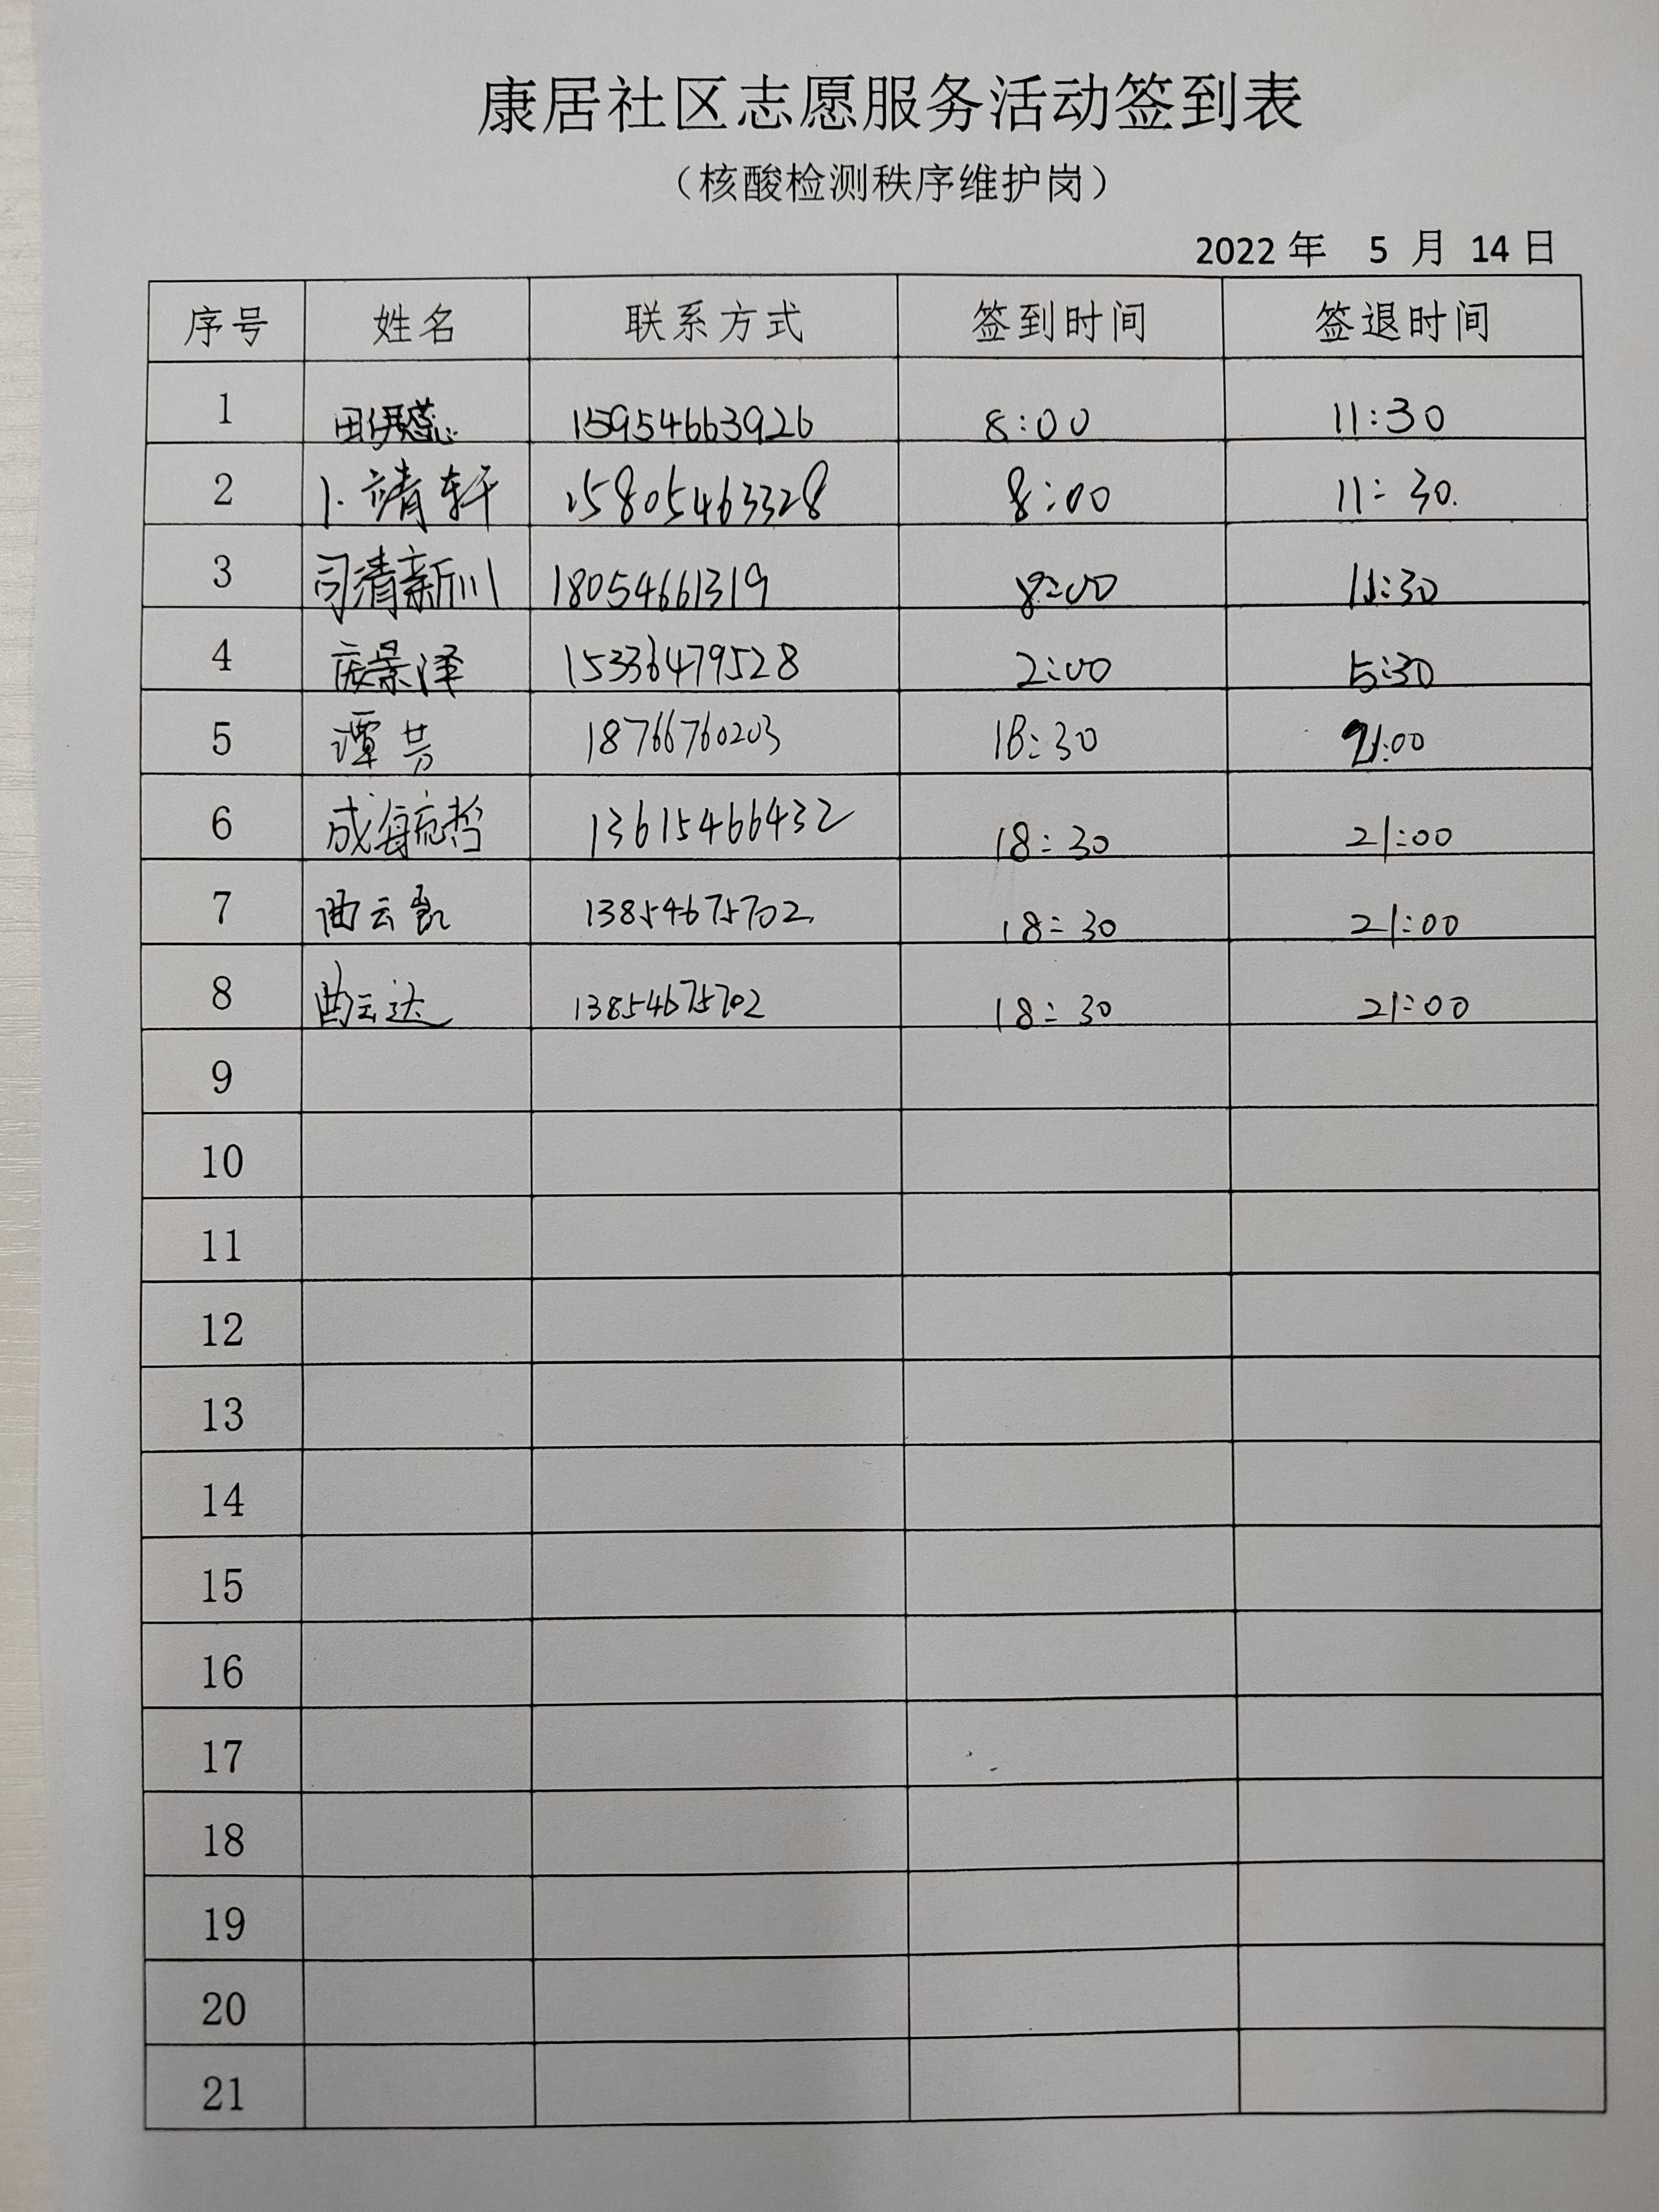 康居社区志愿服务活动签到表
（核酸检测秩序维护岗）
2022 年 5 月 14 日
序号 姓名 联系方式 签到时间 签退时间
1 田伊蕊 15954663926 8:00 11:30
2 卜靖轩 15805463328 8:00 11:30.
3 司清新川 18054661319 8:00 11:30
4 景泽 15336479528 2:00 5:30
5 谭芸 18766760203 18:30 21:00
6 成航哲 13615466432 18:30 21:00
7 曲云凯 13854675702 18:30 21:00
8 曲云达 13854675702 18:30 21:00
9
10
11
12
13
14
15
16
17
18
19
20
21